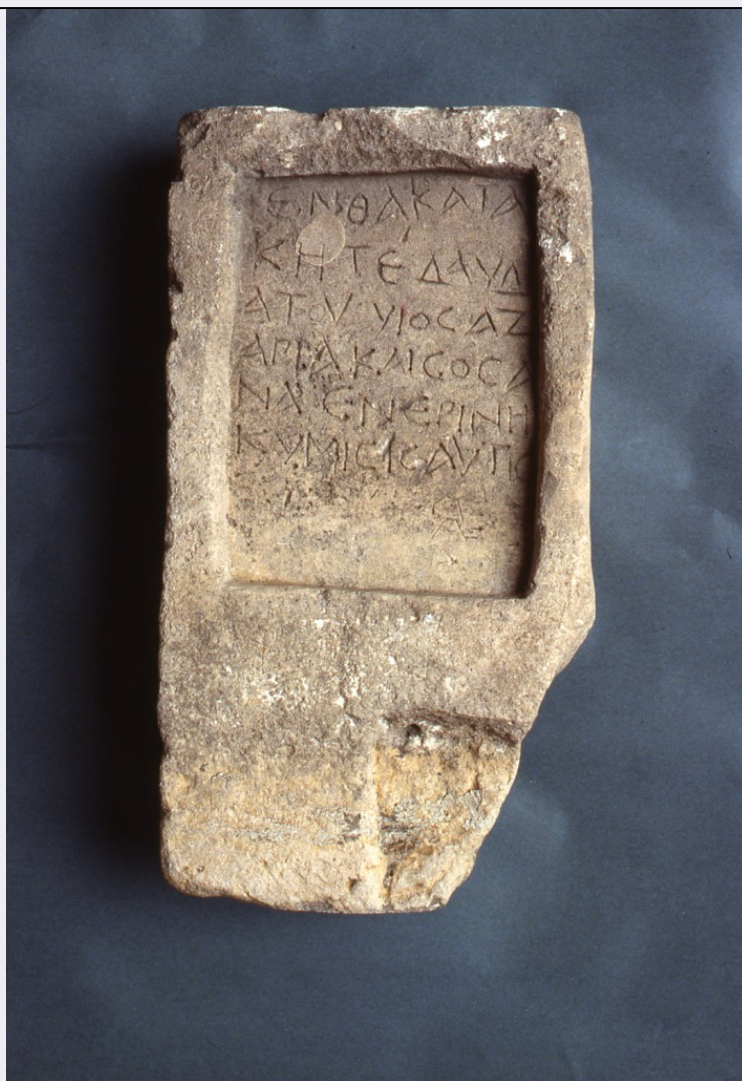 ΕΝΘΑΚΑΤΑ
ΚΗΤΕΔΑΥΔ
ΑΤΟΥΥΙΟϹΑΖ
ΑΡΙΑΚΑΙϹΟϹΑ
ΝΑΕΝΕΡΙΝΗ
ΚΥΜΙϹΙϹΑΥΤΟ